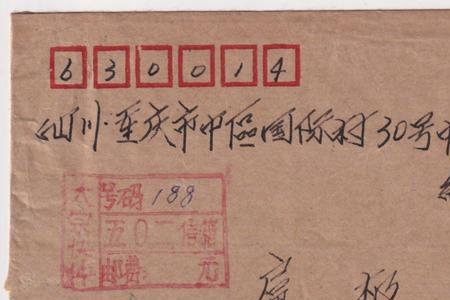 630014
四川·重庆市中區国际村30号
大宗邮件
号码 188
五〇二信箱
邮费: 元